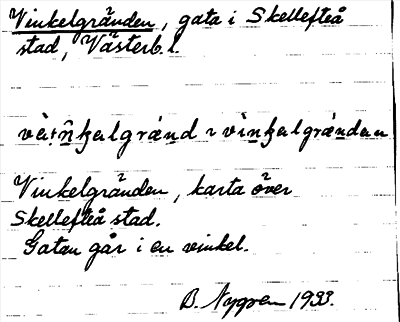 Vinkelgränden, gata i Skellefteå
stad, Västerb. l.
Vinkelgränden, karta över
Skellefteå stad.
Gatan går i en vinkel.
B. Nygren 1933.